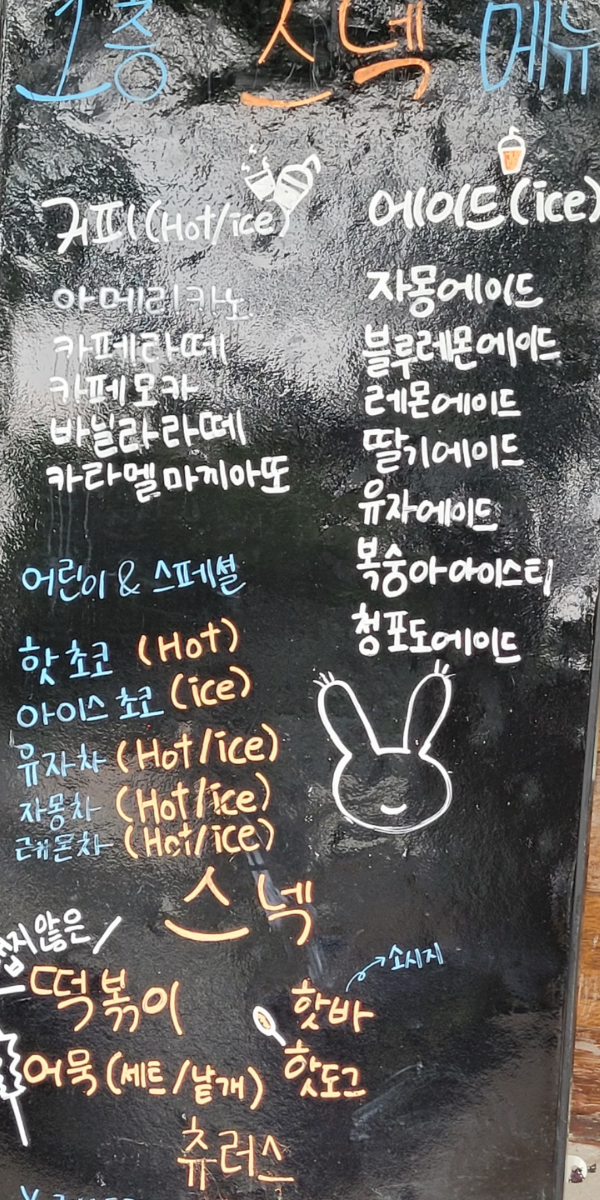 1층 스넥 메뉴
커피(Hot/ice)
아메리카노
카페라떼
카페모카
바닐라라떼
카라멜마끼아또
에이드(ice)
자몽에이드
블루레몬에이드
레몬에이드
딸기에이드
유자에이드
복숭아아이스티
청포도에이드
어린이 & 스페셜
핫초코 (Hot)
아이스 초코 (ice)
유자차 (Hot/ice)
자몽차 (Hot/ice)
레몬차 (Hot/ice)
스넥
않은
떡볶이
어묵(세트/낱개)
소시지
핫바
핫도그
츄러스